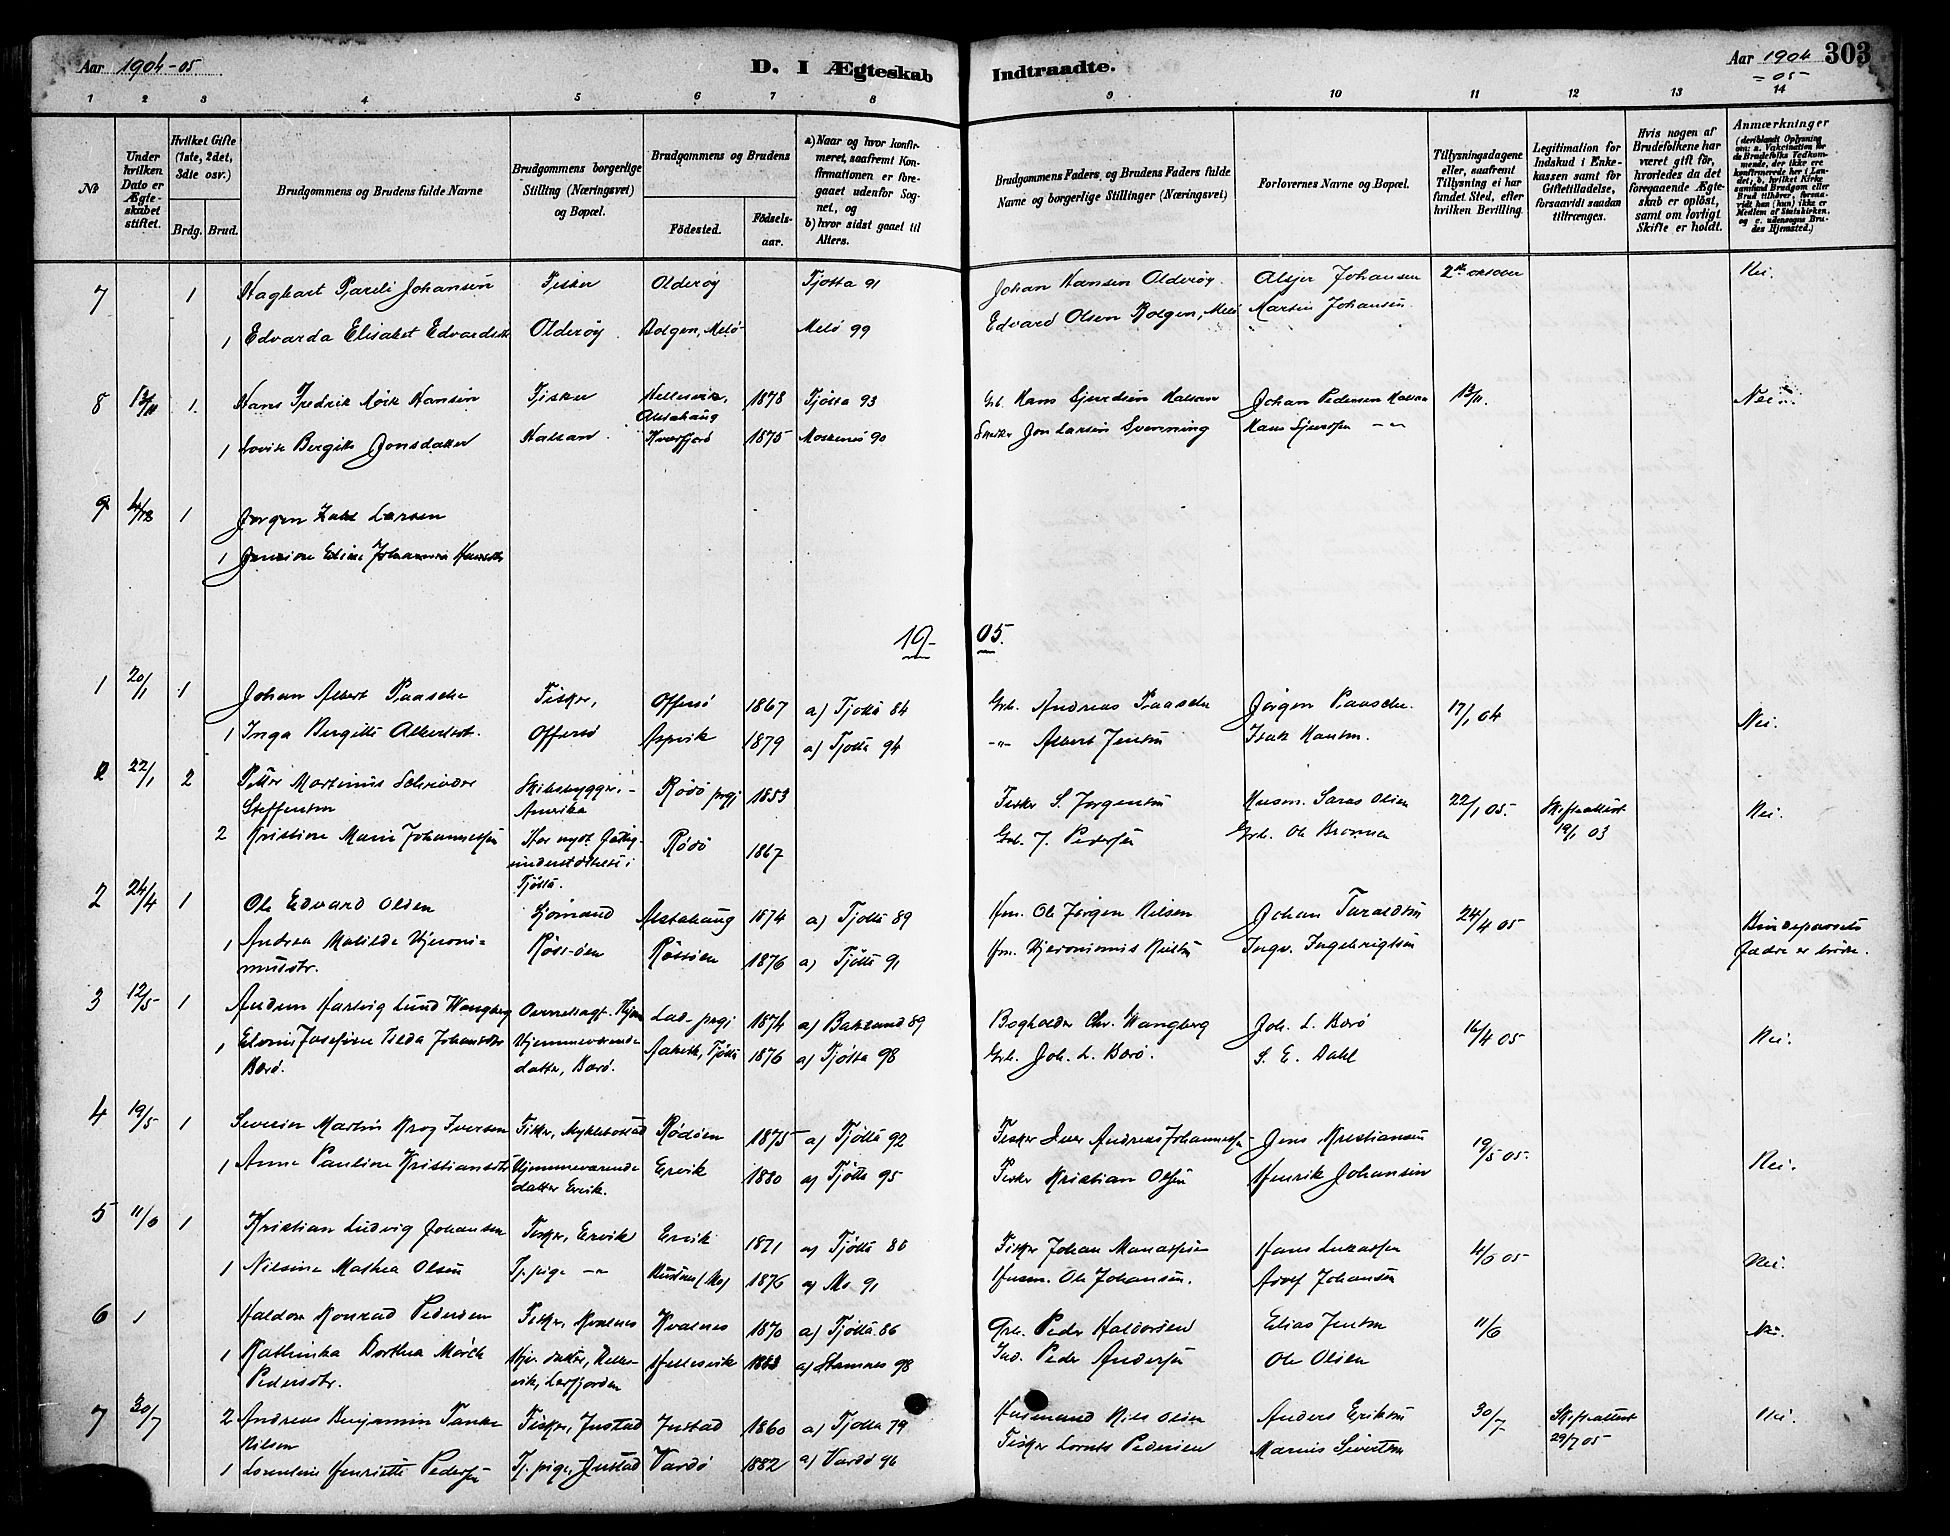 Aar 1904-05
D. I Ægteskab Indtraadte.
Aar 1904 303
-05-
1 2 3 4 5 6 7 8 9 10 11 12 13 14
No
Under hvilken Dato er Ægteskabet stiftet.
Hvilket Gifte (1ste, 2det, 3die osv.)
Brdg. Brud.
Brudgommens og Brudens fulde Navne
Brudgommens borgerlige Stilling (Næringsvei) og Bopæl.
Brudgommens og Brudens
Fødested. Fødselsaar.
a) Naar og hvor konfirmeret, saafremt Konfirmationen er foregaaet udenfor Sognet, og b) hvor sidst gaaet til Alters.
Brudgommens Faders, og Brudens Faders fulde Navne og borgerlige Stillinger (Næringsvei)
Forlovernes Navne og Bopæl.
Tillysningsdagene eller, saafremt Tillysning ei har fundet Sted, efter hvilken Bevilling.
Legitimation for Indskud i Enkekassen samt for Giftetilladelse, forsaavidt saadan tiltrænges.
Hvis nogen af Brudefolkene har været gift før, hvorledes da det foregaaende Ægteskab er opløst, samt om lovligt Skifte er holdt.
Anmærkninger (deriblandt Oplysning om: a. Vakcination for de Brudefolks Vedkommende, der ikke ere konfirmerede her i Landet; b. hvilket Kirkesamfund Brudgom eller Brud tilhører, forsaavidt han (hun) ikke er Medlem af Statskirken, og c. udensogns Brudes Hjemsted.)
7 1 Hagbart Pareli Johansen Fisker Olderøy Tjøtta 91 Johan Hansen Olderøy. Johansen 2den oktober Nei.
1 Edvarda Elisabet Edvardsdtr Olderøy Bolgen, Melø Melø 99 Edvard Olsen Bolgen, Melø Martin Johansen
8 13/11 1. Hans Fredrik Mørk Hansen Fisker Hellesvik, Alstahaug 1878 Tjøtta 93 Grb. Hans Sjurdsen Halsan Johan Pedersen Halsan 13/11. Nei
1 Lovise Bergitte Jonsdatter Halsan. 1875 Moskenes 90 Jon Larsen Hans Sjursen -"-
9 4/12 1 Jørgen Zahl Larsen
1 Elise Johanna Hansdtr
19- 05.
1 20/1 1 Johan Albert Paasche Fisker, Offersø 1867 a) Tjøtta 84 Grb. Andreas Paasche Jørgen Paasche. 17/1 04 Nei.
1 Inga Bergitte Albertsdt. Offersø Aspvik 1879 a) Tjøtta 94 -"- Albert Jensen Isak Hansen.
2 22/1 2 Petter Martinus Schrøder Steffensen Skibsbygger i Amerika Rødø prgj 1853 Fisker S. Jørgensen Husm. Saras Olsen 22/1 05. Skifteattest 19/1 03 Nei.
2 Kristine Marie Johannessen Har nydt fattigunderstøttelse i Tjøtta. Rødø 1867 Grb. J. Pedersen Grb. Ole Brønnen
2 24/4 1 Ole Edvard Olsen Sjømand Alstahaug 1874 a) Tjøtta 89 Hm. Ole Jørgen Nilsen Johan Taraldsen 24/4 05 Brudeparrets
1 Andrea Matilde Hjeronimusdtr. Røssøen Røssøen 1876 a) Tjøtta 91 Hm. Hjeronimus Nilsen Ingv. Ingebrigtsen fædre er brødre.
3 12/5 1 Hartvig Lund Wangberg Lad- prgj 1874 a) Baklund 89 Bogholder Chr. Wangberg Joh. L. Barø 16/4 05 Nei.
1 Josefine Tilda Johansdtr Barø. Hjemmeværende datter, Barø. Tjøtta 1876 a) Tjøtta 98 Grb. Joh. L. Barø. S. E. Dahl
4 19/5 1 Severin Martin Krog Iversen Fisker, Myklebostad Rødøen 1875 a) Tjøtta 92 Fisker Iver Andreas Johannessen Jens Kristiansen 19/5 05. Nei.
1 Anne Pauline Kristiansdtr Hjemmeværende datter Ervik. Ervik 1880 a) Tjøtta 95 Fisker Kristian Olsen Henrik Johansen
5 11/6 1 Kristian Ludvig Johansen Fisker, Ervik Ervik 1871 a) Tjøtta 86 Fisker Johan Manassen Hans Lukassen 4/6 05 Nei.
1 Nilsine Mathea Olsen Tj. pige -"- 1876 a) Mo 91 Husm. Ole Johansen. Adolf Johansen
6 1 Haldor Konrad Pedersen Fisker, Kvalnes Kvalnes 1870 a) Tjøtta 86 Grb. Peder Haldorsen Elias Jensen 11/6 Nei.
1 Kathinka Dorthea Mørch Pedersdtr. Hjv. datter, Hellesvik, Leirfjorden Hellesvik 1883 a) Stamnes 98 Ind. Peder Andersen Ole Olsen
7 30/7 2 Andreas Benjamin Tanke Nilsen Fisker, Justad Justad 1860 a) Tjøtta 79 Husmand Nils Olsen Anders Eriksen 30/7 Skifteattest 29/7 05 Nei.
1 Lorentine Henriette Pedersen Tj. pige, Justad Vardø 1882 a) Vardø 96 Fisker Lornts Pedersen Marius Sivertsen